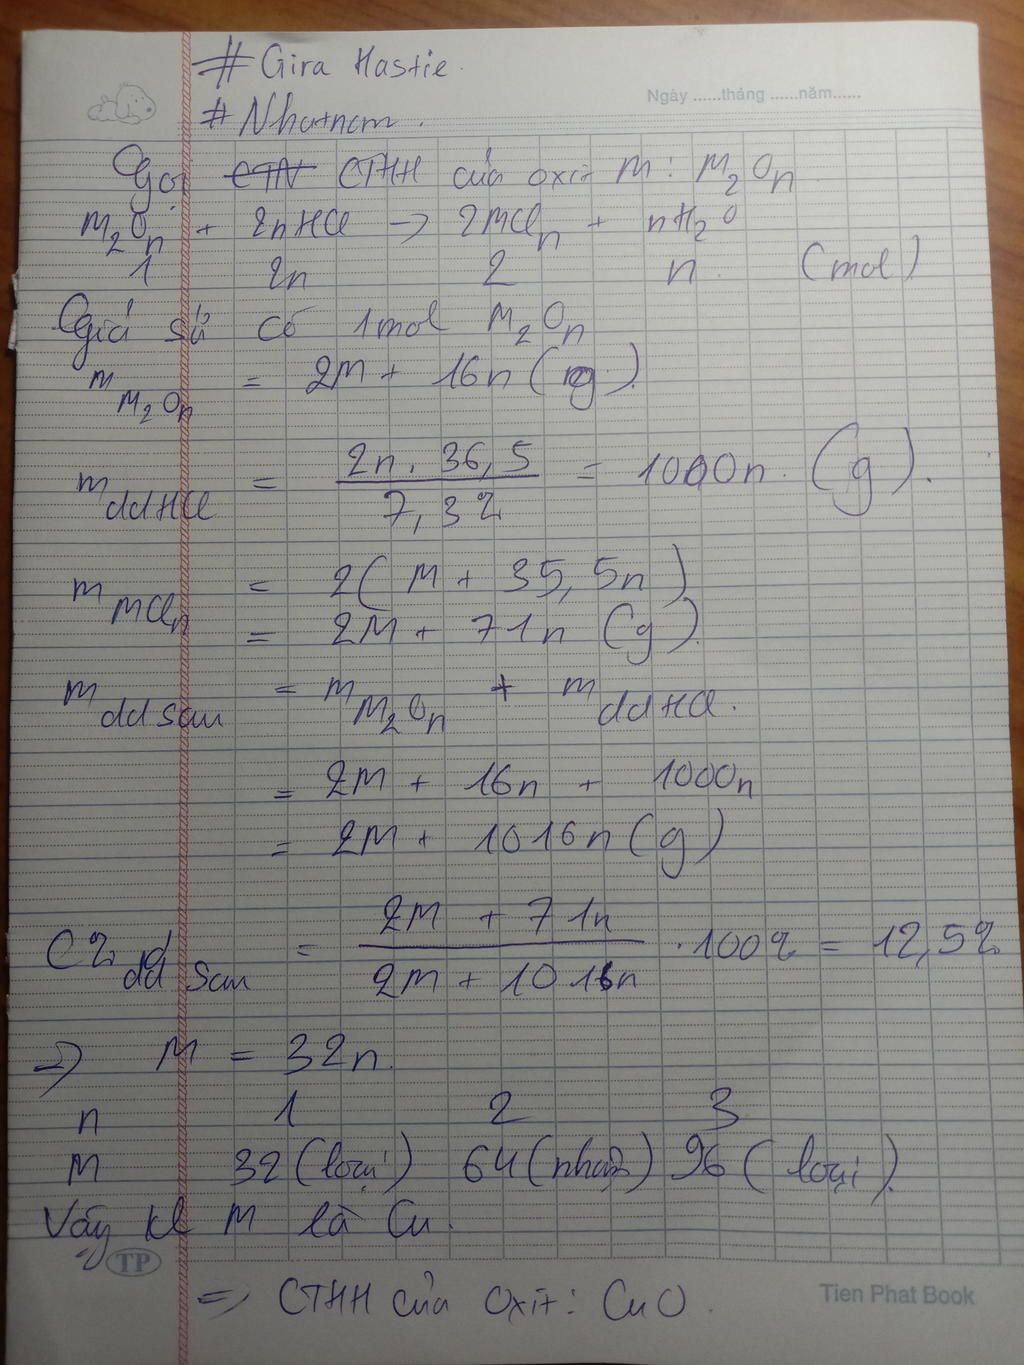 # Gira Hastie.
Ngày ......tháng ......năm......
# Nhatnam.
Gọi CTN CTHH của oxit M: M₂Oₙ
M₂Oₙ + 2nHCl → 2MClₙ + nH₂O
1 2n 2 n (mol)
Giả sử có 1mol M₂Oₙ
m M₂Oₙ = 2M + 16n (g).
m ddHCl = 2n . 36,5 / 7,3% = 1000n . (g).
m MClₙ = 2(M + 35,5n)
= 2M + 71n (g).
m dd sau = m M₂Oₙ + m ddHCl.
= 2M + 16n + 1000n
= 2M + 1016n (g)
C% dd sau = 2M + 71n / 2M + 1016n . 100% = 12,5%
⇒ M = 32n.
n 1 2 3
M 32 (loại) 64 (nhận) 96 (loại).
Vậy kl M là Cu.
TP
⇒ CTHH của Oxit: CuO.
Tien Phat Book